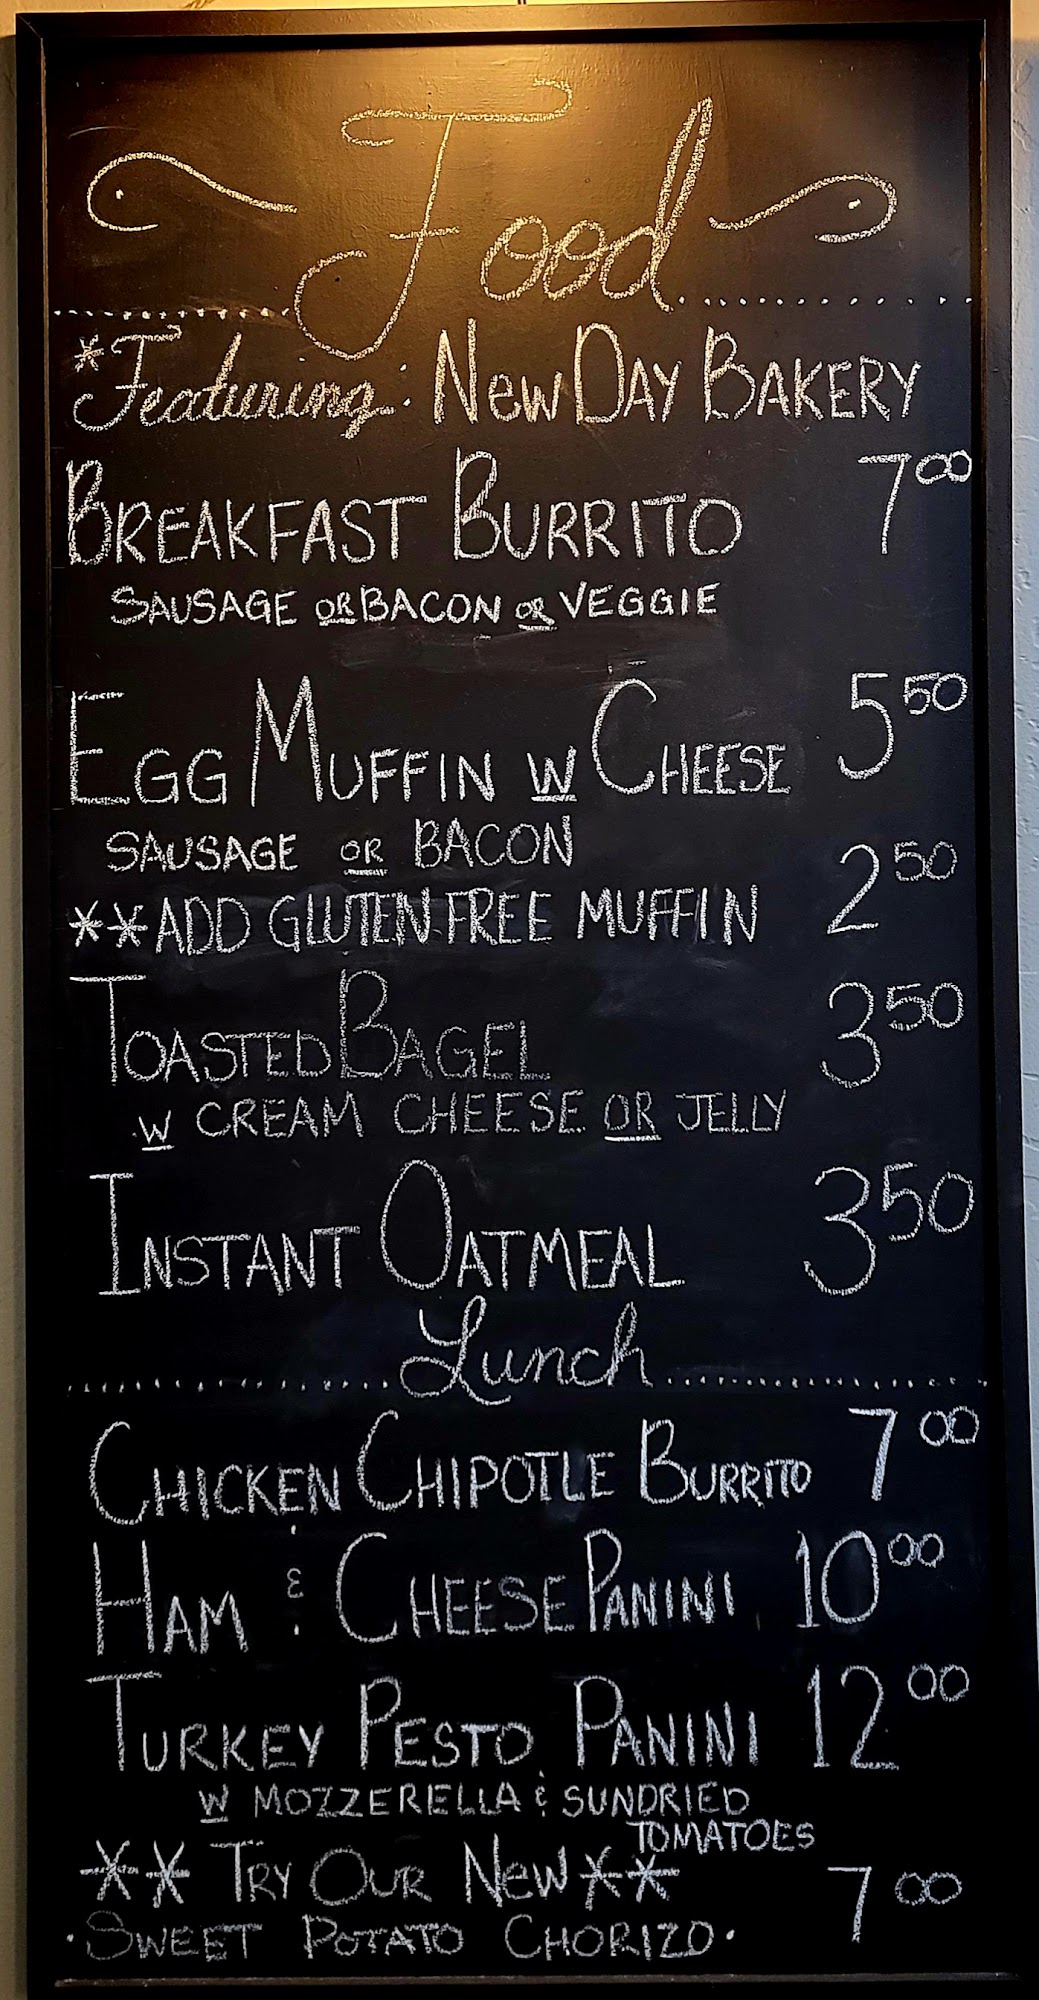 Food
*Featuring: New Day Bakery
Breakfast Burrito 7.00
Sausage or Bacon or Veggie
Egg Muffin w Cheese 5.50
Sausage or Bacon
**Add Gluten Free Muffin 2.50
Toasted Bagel 3.50
w Cream Cheese or Jelly
Instant Oatmeal 3.50
Lunch
Chicken Chipotle Burrito 7.00
Ham & Cheese Panini 10.00
Turkey Pesto Panini 12.00
w Mozzerella & Sundried
Tomatoes
** Try Our New ** 7.00
· Sweet Potato Chorizo ·